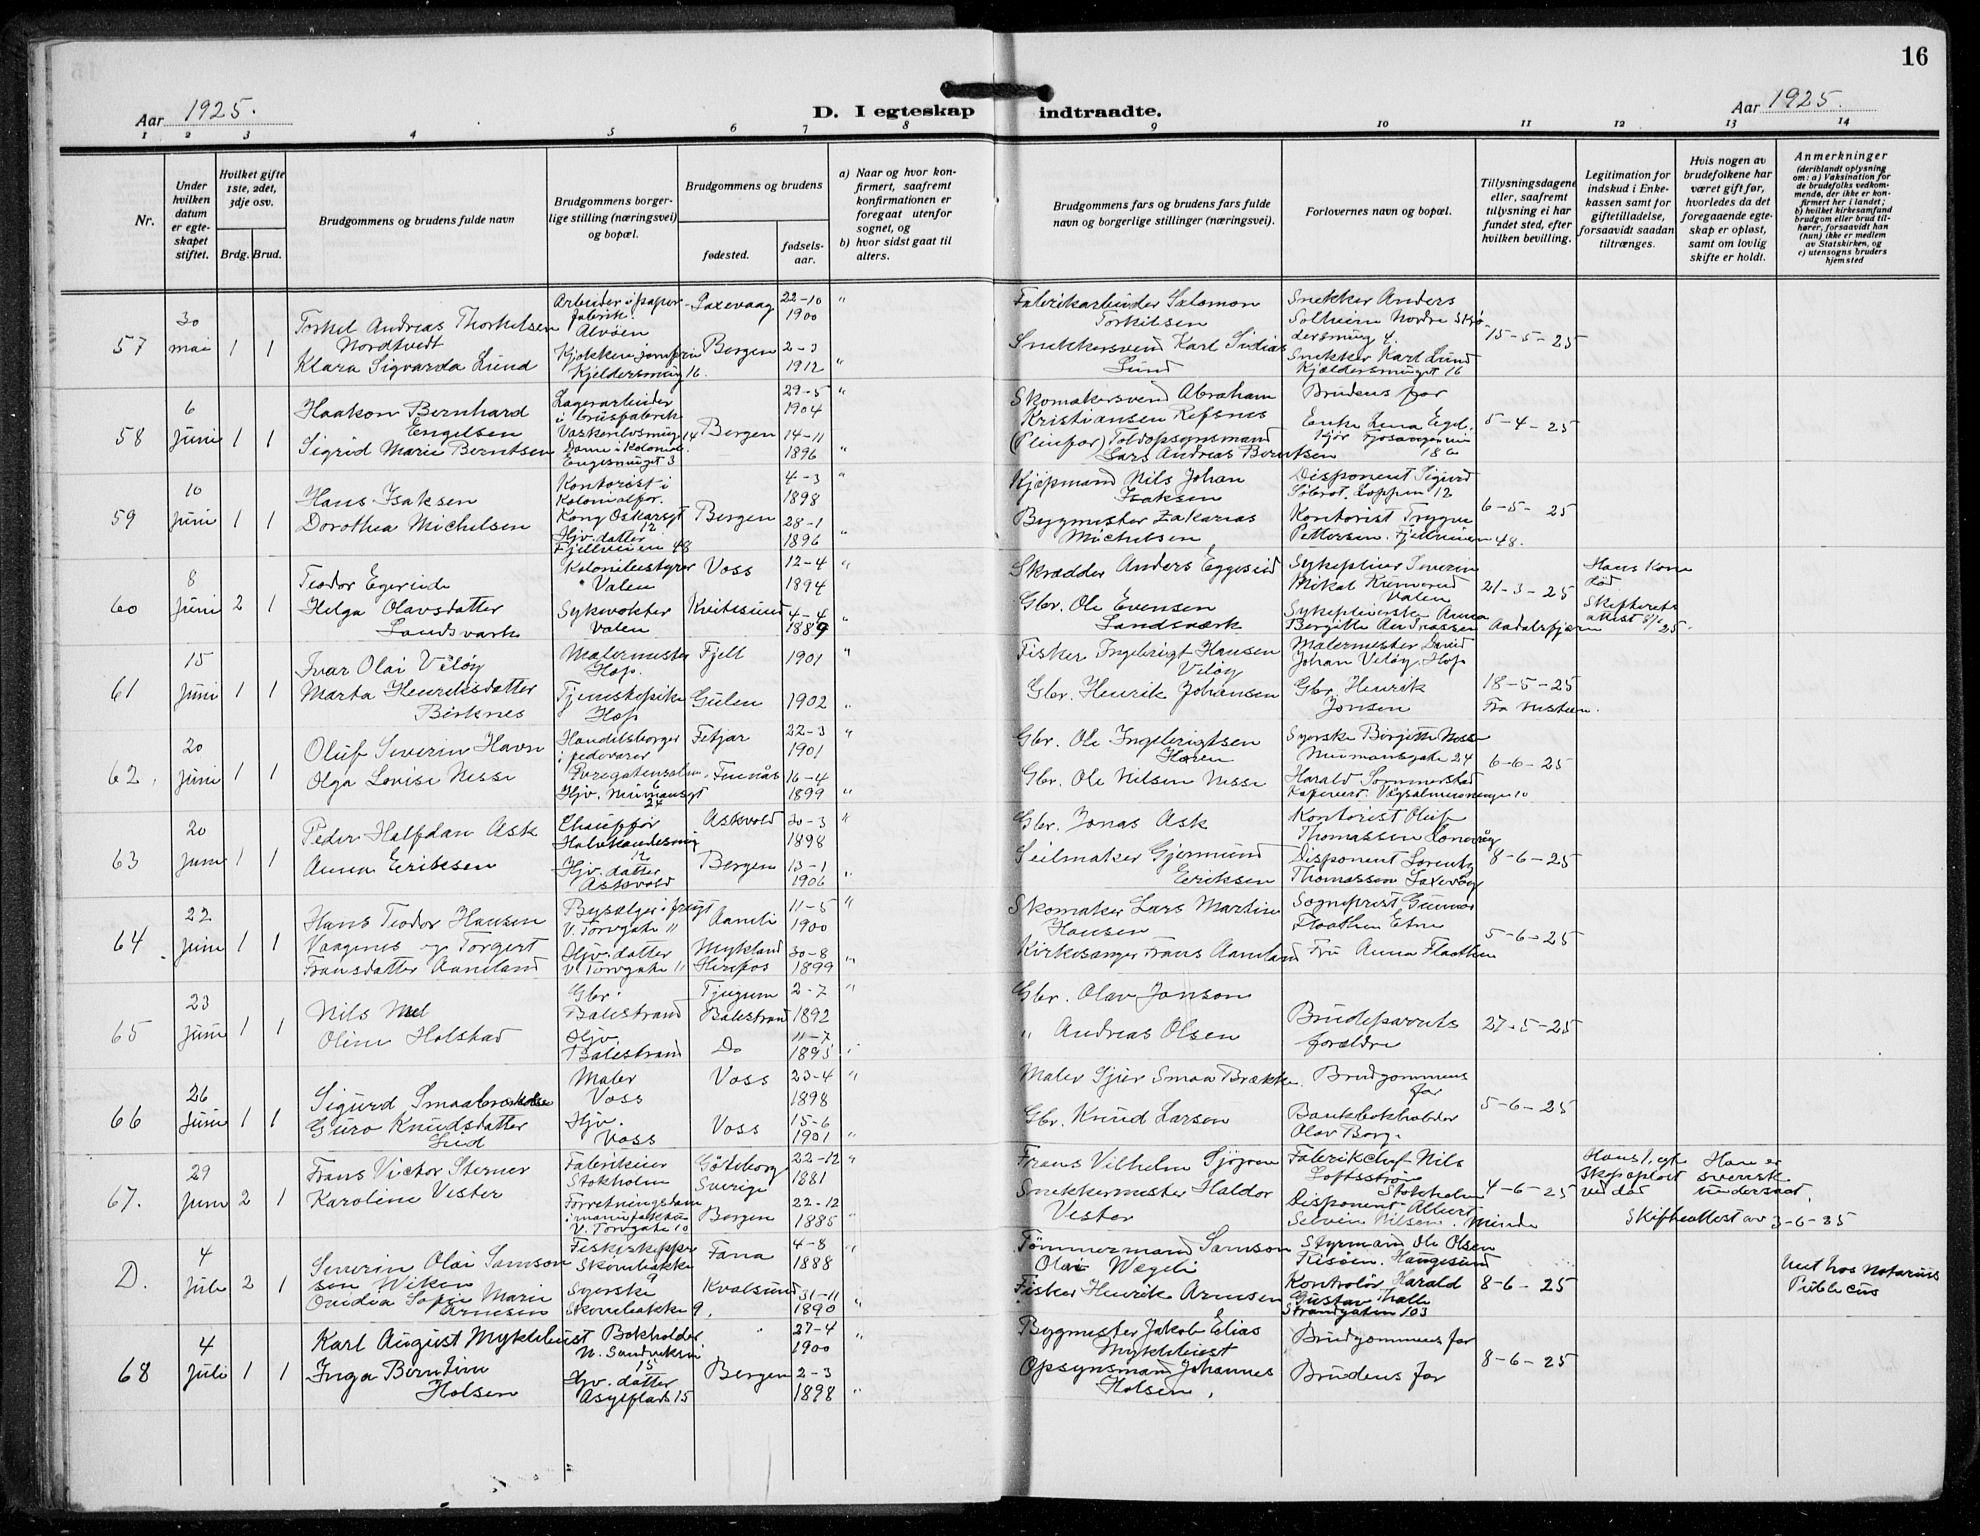 16
Aar 1925.
D. I egteskap indtraadte.
Aar 1925.
1 2 3 4 5 6 7 8 9 10 11 12 13 14
Nr.
Under hvilken datum er egteskapet stiftet.
Hvilket gifte 1ste, 2det, 3dje osv.
Brdg. Brud.
Brudgommens og brudens fulde navn
Brudgommens borgerlige stilling (næringsvei) og bopæl.
Brudgommens og brudens
fødested.
fødselsaar.
a) Naar og hvor konfirmert, saafremt konfirmationen er foregaat utenfor sognet, og
b) hvor sidst gaat til alters.
Brudgommens fars og brudens fars fulde navn og borgerlige stillinger (næringsvei).
Forlovernes navn og bopæl.
Tillysningsdagene eller, saafremt tillysning ei har fundet sted, efter hvilken bevilling.
Legitimation for indskud i Enkekassen samt for giftetilladelse, forsaavidt saadan tiltrænges.
Hvis nogen av brudefolkene har været gift før, hvorledes da det foregaaende egteskap er opløst, samt om lovlig skifte er holdt.
Anmerkninger
(deriblandt oplysning om: a) Vaksination for de brudefolks vedkommende, der ikke er konfirmert her i landet;
b) hvilket kirkesamfund brudgom eller brud tilhører, forsaavidt han (hun) ikke er medlem av Statskirken, og
c) utensogns bruders hjemsted
57 30 mai 1 1
Torkel Andreas Thorkelsen Nordtvedt
Klara Sigvarda Lund
Arbeider i papirfabrik Alvøen
Kjøkkenjomfru Kjeldersmug 16.
Laxevaag 22-10 1900 "
Bergen 2-3 1912 "
Fabrikarbeider Salomon Torkilsen
Snekkersvend Karl Lund
Snekker Anders Solheim Nordre
Snekker Karl Lund Kjældersmuget 16
15-5-25
58 6 Juni 1 1
Haakon Bernhard Engelsen
Sigrid Marie Berntsen
Lagerarbeider
Dame i Kolonial. Engesmuget 3
29-5 1904 "
Bergen 14-11 1896 "
Skomakersvend Abraham Kristiansen Refsnes
(Pleiefar) Toldopsynsmand Lars Andreas Berntsen
Brudens far
Enke Lina
5-4-25
59 10 Juni 1 1
Hans Isaksen
Dorothea Michelsen
Kontorist i Kolonialfor. Kong Oskarsgt 12
Hjv. datter Fjellveien 48
4-3 1898 "
Bergen 28-1 1896 "
Kjøpmand Nils Johan Isaksen
Bygmester Zakarias Michelsen
Disponent Sigurd
Kontorist Trygve Pettersen. Fjellveien 48.
6-5-25
60 8 Juni 2 1
Teodor Egeside
Helga Olavsdatter Landsverk
Kolonibestyrer Valen
Sykevokter Valen
Voss 12-4 1894 "
Kvitesund 4-4 1889 "
Skrædder Anders Eggesid
Gbr. Ole Evensen Landsverk
Sykepleier Severin Mikal Valen
Sykepleierske Anna Bergitte
21-3-25
Hans Kone død
Skifterets attest
61 15 Juni 1 1
Ivar Olai Viløy
Marta Henriksdatter Birknes
Malermester Hop.
Tjenestepike Hop
Fjell 1901 "
Gulen 1902 "
Fisker Ingebrigt Hansen Viløy
Gbr. Henrik Johansen
Malermester David Johan Viløy, Hop
Gbr. Henrik Jonsen
18-5-25
62. 20 Juni 1 1
Oluf Severin Havn
Olga Lovise Nesse
Handelsborger i fedevarer
Hjv. Neumansgt 24
Fitjar 22-3 1901 "
16-4 1899 "
Gbr. Ole Ingebrigtsen Haven
Gbr. Ole Nilsen Nesse
Syerske Birgitte Nesse Neumansgate 24
Harald Sommerstad
6-6-25
63 20 Juni 1 1
Peder Halfdan Ask
Anna Eriksen
Chauffør 12
Hjv. datter Askvold
Askvold 20-3 1898 "
Bergen 13-1 1906 "
Gbr. Jonas Ask
Seilmaker Gjermund Eriksen
Kontorist Oluf Thomassen
Disponent Lorentz Thomassen Laxevåg
8-6-25
64 22 Juni 1 1
Hans Teodor Hansen Vaagenes og Torgert Fransdatter Aaneland
Bysælger i frugt V. Torvgate 11
Hjv. datter V. Torvgate 11
11-5 1900 "
Mykland 30-8 1899 "
Skomaker Lars Martin Hansen
Kirkesanger Frans Aaneland
Sogneprest Gunnar Flaathen Etne
Fru Anna Flaathen
5-6-25
65 23 Juni 1 1
Nils Mel
Oline Holstad
Gbr. Balestrand
Hjv. Balestrand
Tjugum Balestrand 2-7 1892 "
Do 11-7 1895 "
Gbr. Olav Jonson
" Andreas Olsen
Brudeparrets forældre
27-5-25
66 26 Juni 1 1
Sigurd Smaabrække
Guro Knudsdatter Lid
Maler Voss
Hjv. Voss
Voss 23-4 1898 "
Voss 15-6 1901 "
Maler Sjur Smaa Brække.
Gbr. Knud Larsen
Brudgommens far
Bankbokholder Olav Borg.
5-6-25
67. 29 Juni 2 1
Frans Victor Sterner
Karoline Vester
Fabrikeier Stokholm
Forretningsdame i manufaktur V. Torvgate 10
Göteborg Sverige 22-12 1881 "
Bergen 22-12 1885 "
Frans Vilhelm Sjøgren
Snekkermester Haldor Vester
Fabrikchef Nils Loftsström Stokholm
Disponent Albert Nilsen. Minde
4-6-25
Hans 1. egteskap opløst ved død
Han er svensk undersaat.
Skifteattest av 3-6-25
D. 4 Juli 2 1
Severin Olai Samsonsen Wiken
Ovidia Sofie Marie Arnesen
Fiskeskipper Skovebakke 9
Syerske Skovebakke 9.
Fana 4-8 1888 "
Kvalsund 31-11 1890 "
Tømmermand Samson Olai Wegeli
Fisker Henrik Arnesen
Styrmand Ole Olsen Haugesund
Kontorør Harald Gustav Thalle Strandgaten 103
8-6-25
Viet hos Notarius Publicus
68 4 Juli 1 1
Karl August Myklebust
Inga Berntine Holsen
Bokholder N. Sandviksvei 15
Hjv. datter Asylplads 15
" 27-4 1900 "
Bergen 2-3 1898 "
Bygmester Jakob Elias Myklebust
Opsynsmand Johannes Holsen.
Brudgommens far
Brudens far
8-6-25